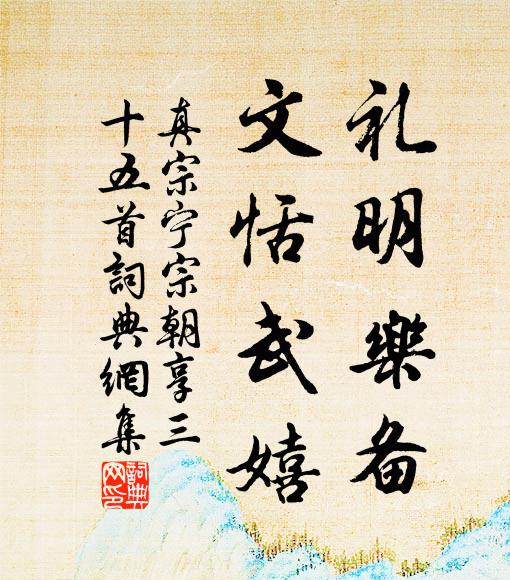 礼明樂备
文恬武嬉
真宗宁宗朝享三
十五首詞典網集
詞典
网印